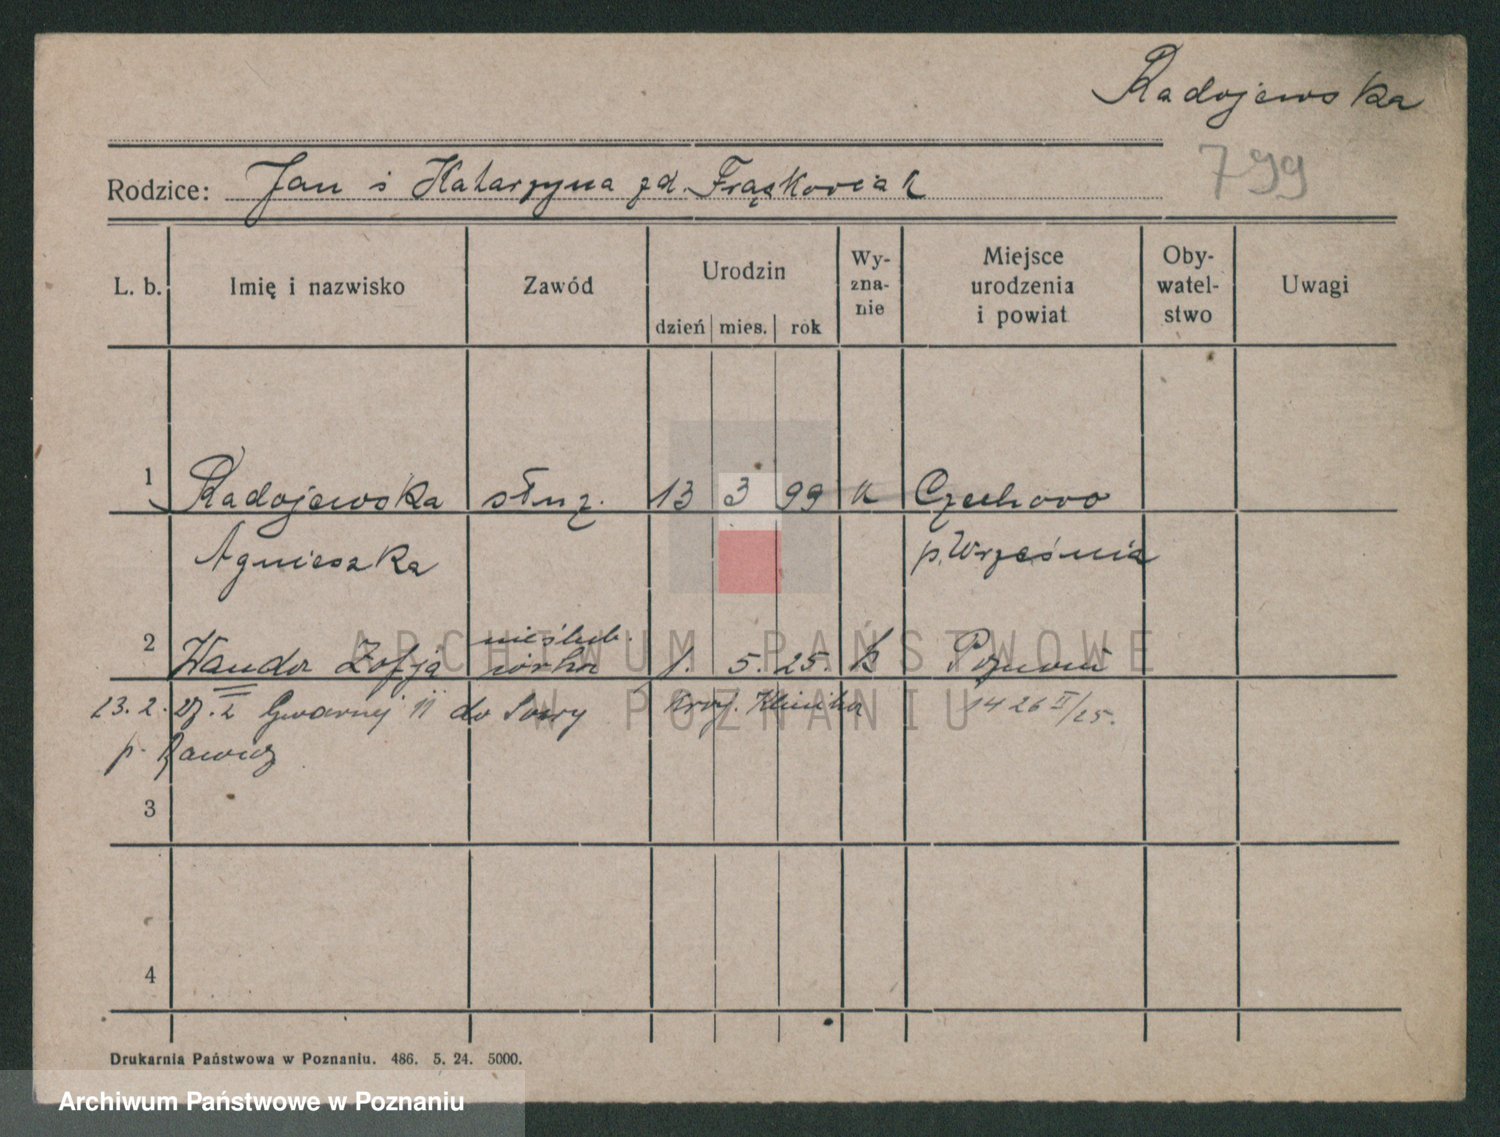 Radojewska
799
Rodzice: Jan i Katarzyna zd. Frąckowiak
L. b. Imię i nazwisko Zawód Urodzin dzień mies. rok Wy-zna-nie Miejsce urodzenia i powiat Oby-watel-stwo Uwagi
1 Radojewska służ. 13 3 99 k Czechowo
Agnieszka p. Września
nieślub.
2 Wanda Zofja córka 1. 5. 25. k Poznań
23. 2. 27. z Gwarnej 11 do Sowy Kroj. Klinika 1426 II/25.
p. Rawicz
3
4
ARCHIWUM PAŃSTWOWE
W POZNANIU
Drukarnia Państwowa w Poznaniu. 486. 5. 24. 5000.
Archiwum Państwowe w Poznaniu